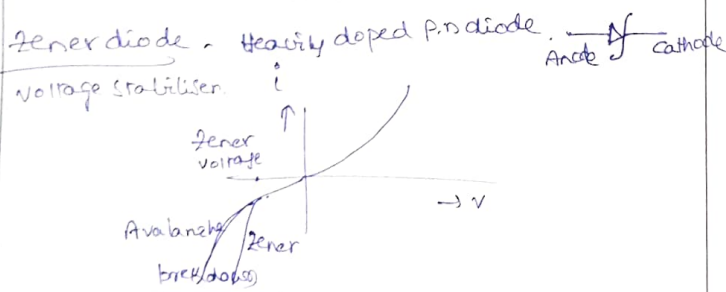 Zener diode - Heavily doped P.n diode.
Anode Cathode
Voltage Stabiliser.
i
Zener
voltage
→ V
Avalanche
Zener
breakdown